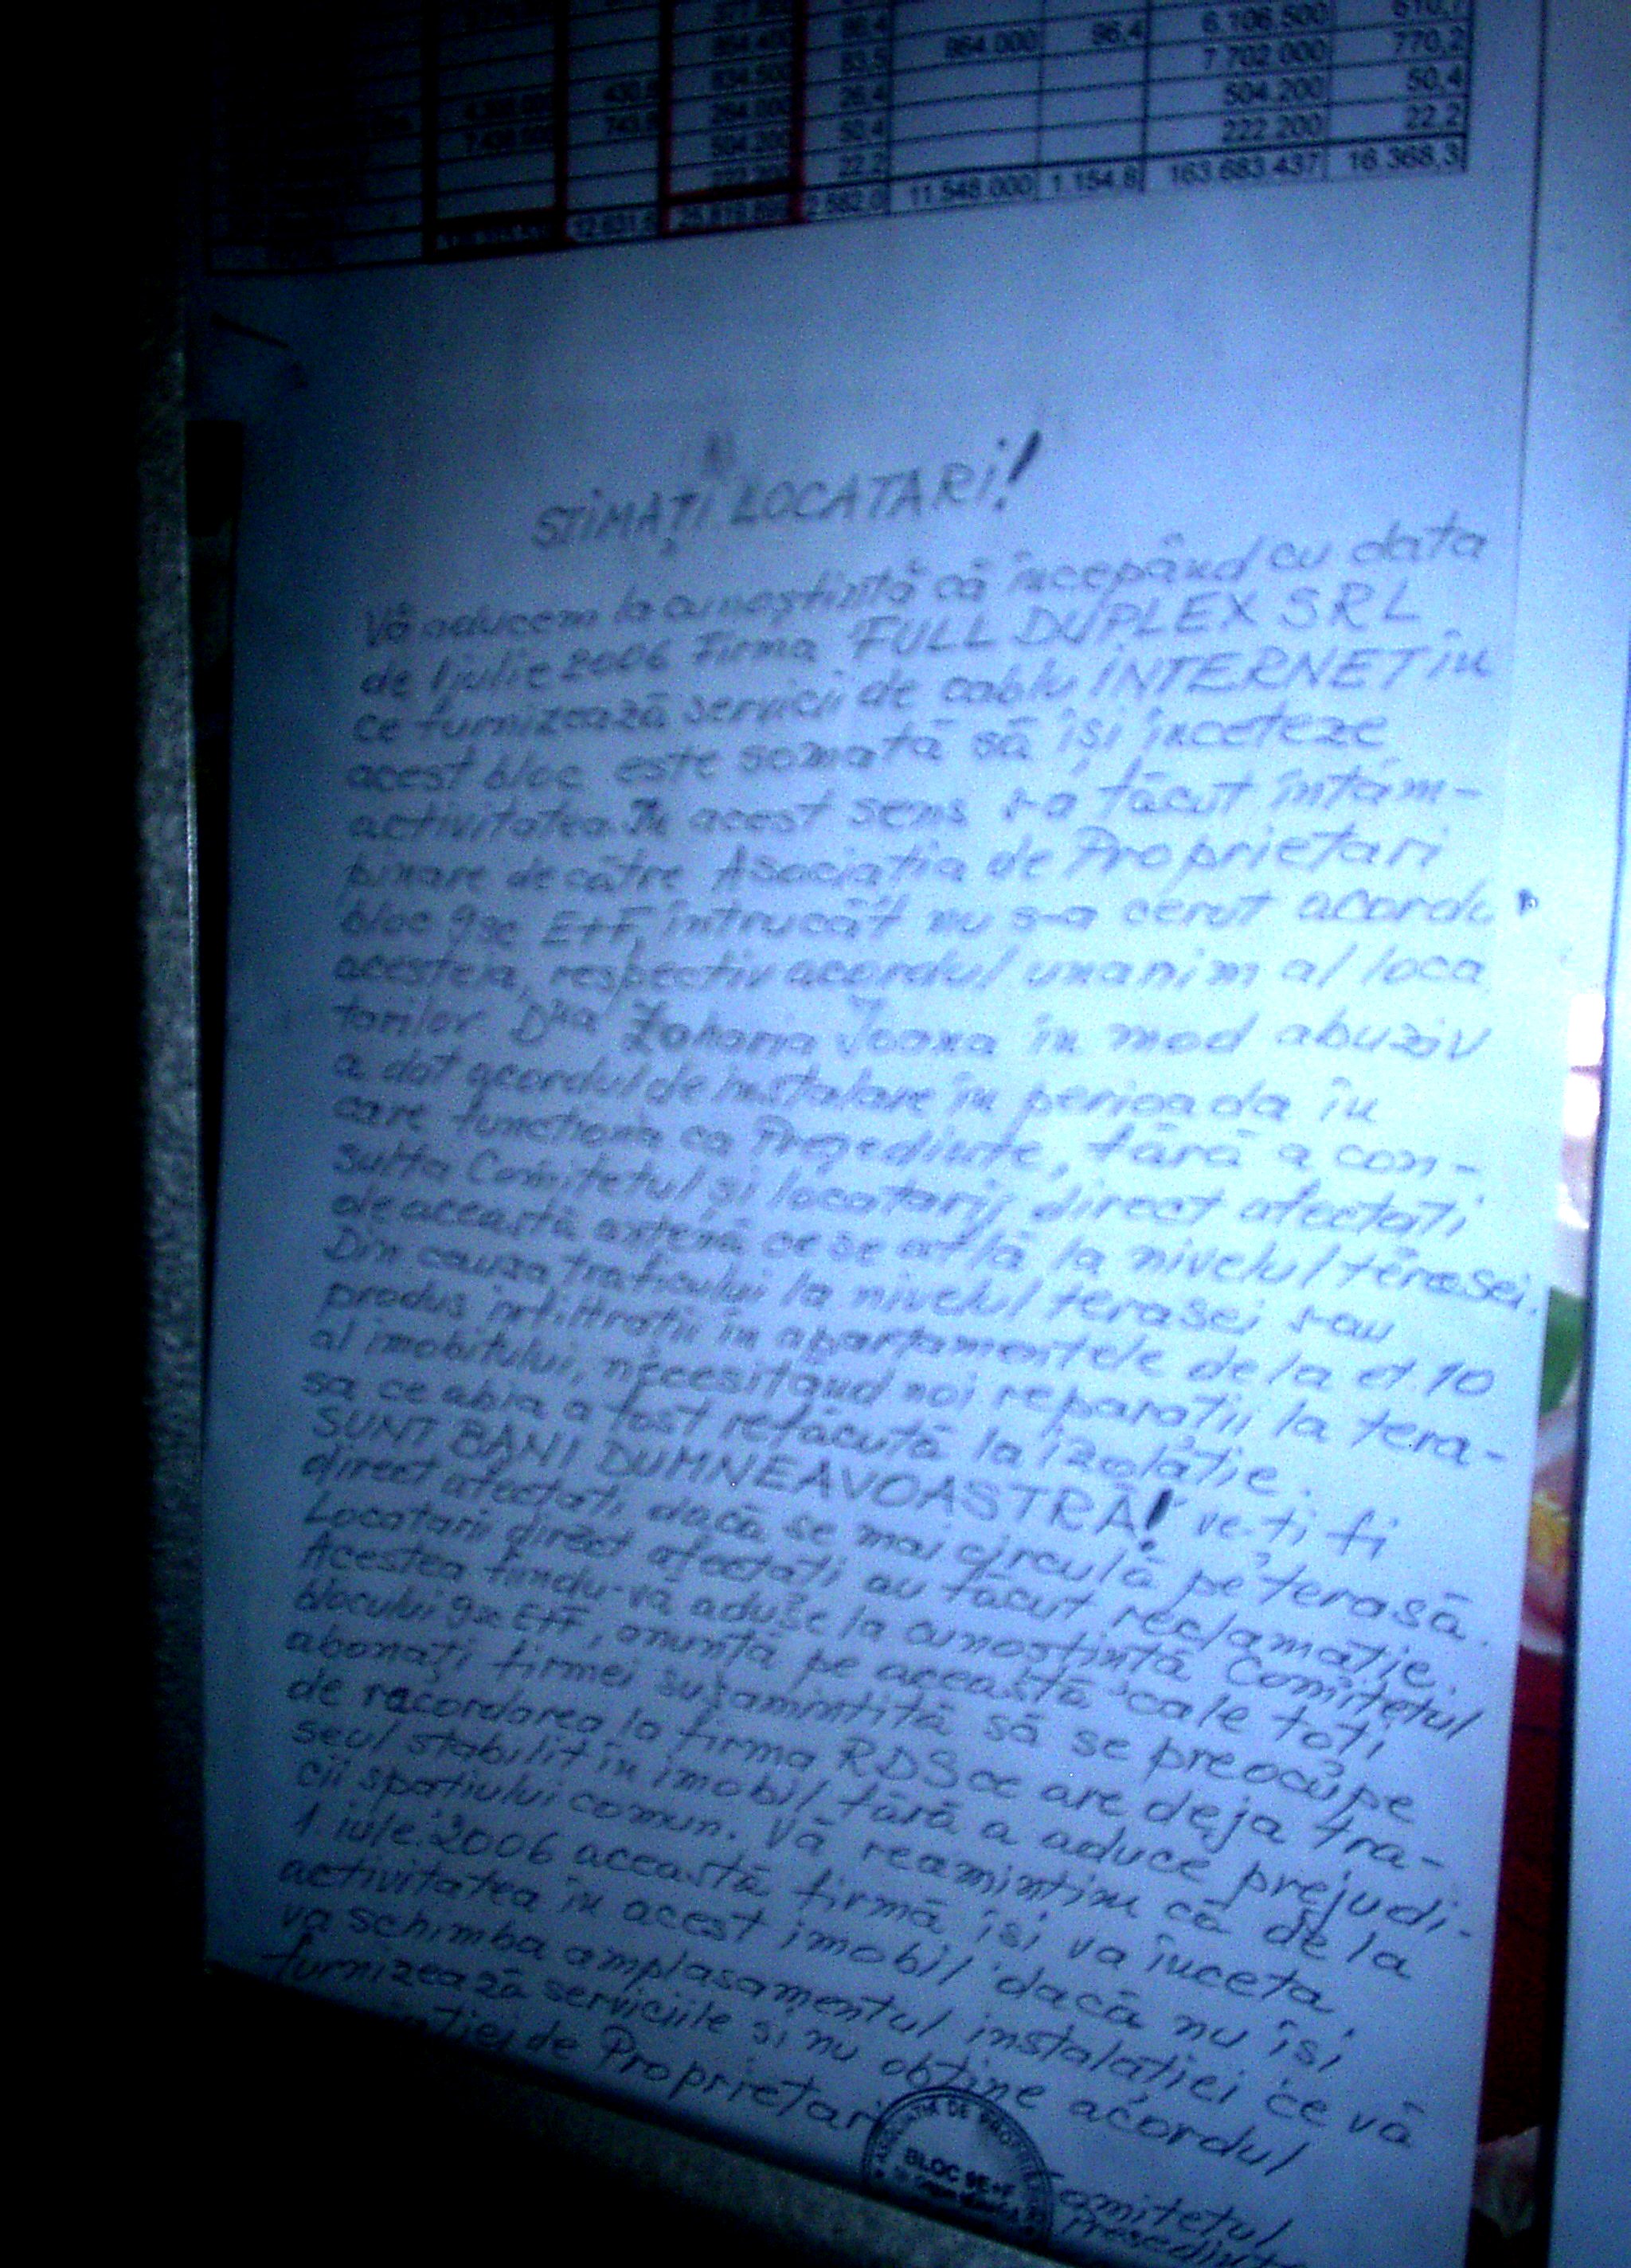 864.400 86,4 864.000 86,4 6.106.500 610,7
834.500 83,5 7.702.000 770,2
430,6 264.000 26,4 504.200 50,4
743,6 504.200 50,4 222.200 22,2
222.200 22,2
12.631,6 2.582,0 11.548.000 1.154,8 163.683.437 16.368,3
STIMAȚI LOCATARI!
Vă aducem la cunoștință că începând cu data
de 1 julie 2006 Firma FULL DUPLEX SRL
ce furnizează servicii de cablu INTERNET în
acest bloc este somată să își înceteze
activitatea. În acest sens s-a făcut întâm-
pinare de către Asociația de Proprietari
bloc 9sc E+F, întrucât nu s-a cerut acordul
acesteia, respectiv acordul unanim al loca
tarilor. Dna Zaharia Joana în mod abuziv
a dat acordul de instalare în perioada în
care functiona ca Președinte, fără a con-
sulta Comitetul și locatarii direct afectați
de această antenă ce se află la nivelul terasei.
Din cauza traficului la nivelul terasei s-au
produs infiltratii în apartamentele de la et. 10
al imobilului, necesitând noi reparatii la tera-
sa ce abia a fost refăcută la izolație.
SUNT BANI DUMNEAVOASTRĂ! ve-ți fi
direct afectati dacă se mai circulă pe terasă.
Locatarii direct afectați au făcut reclamație.
Acestea fiindu-vă aduse la cunoștință Comitetul
blocului 9sc E+F, anunță pe această cale toți
abonați firmei sus amintită să se preocupe
de racordarea la firma RDS ce are deja tra-
seul stabilit în imobil fără a aduce prejudi-
cii spațiului comun. Vă reamintim că de la
1. iulie. 2006 această firmă își va înceta
activitatea în acest imobil dacă nu își
va schimba amplasamentul instalației ce vă
furnizează serviciile și nu obține acordul
de Proprietari
ASOCIATIA DE PROPRIETARI
BLOC 9E+F
Comitetul
Președinte